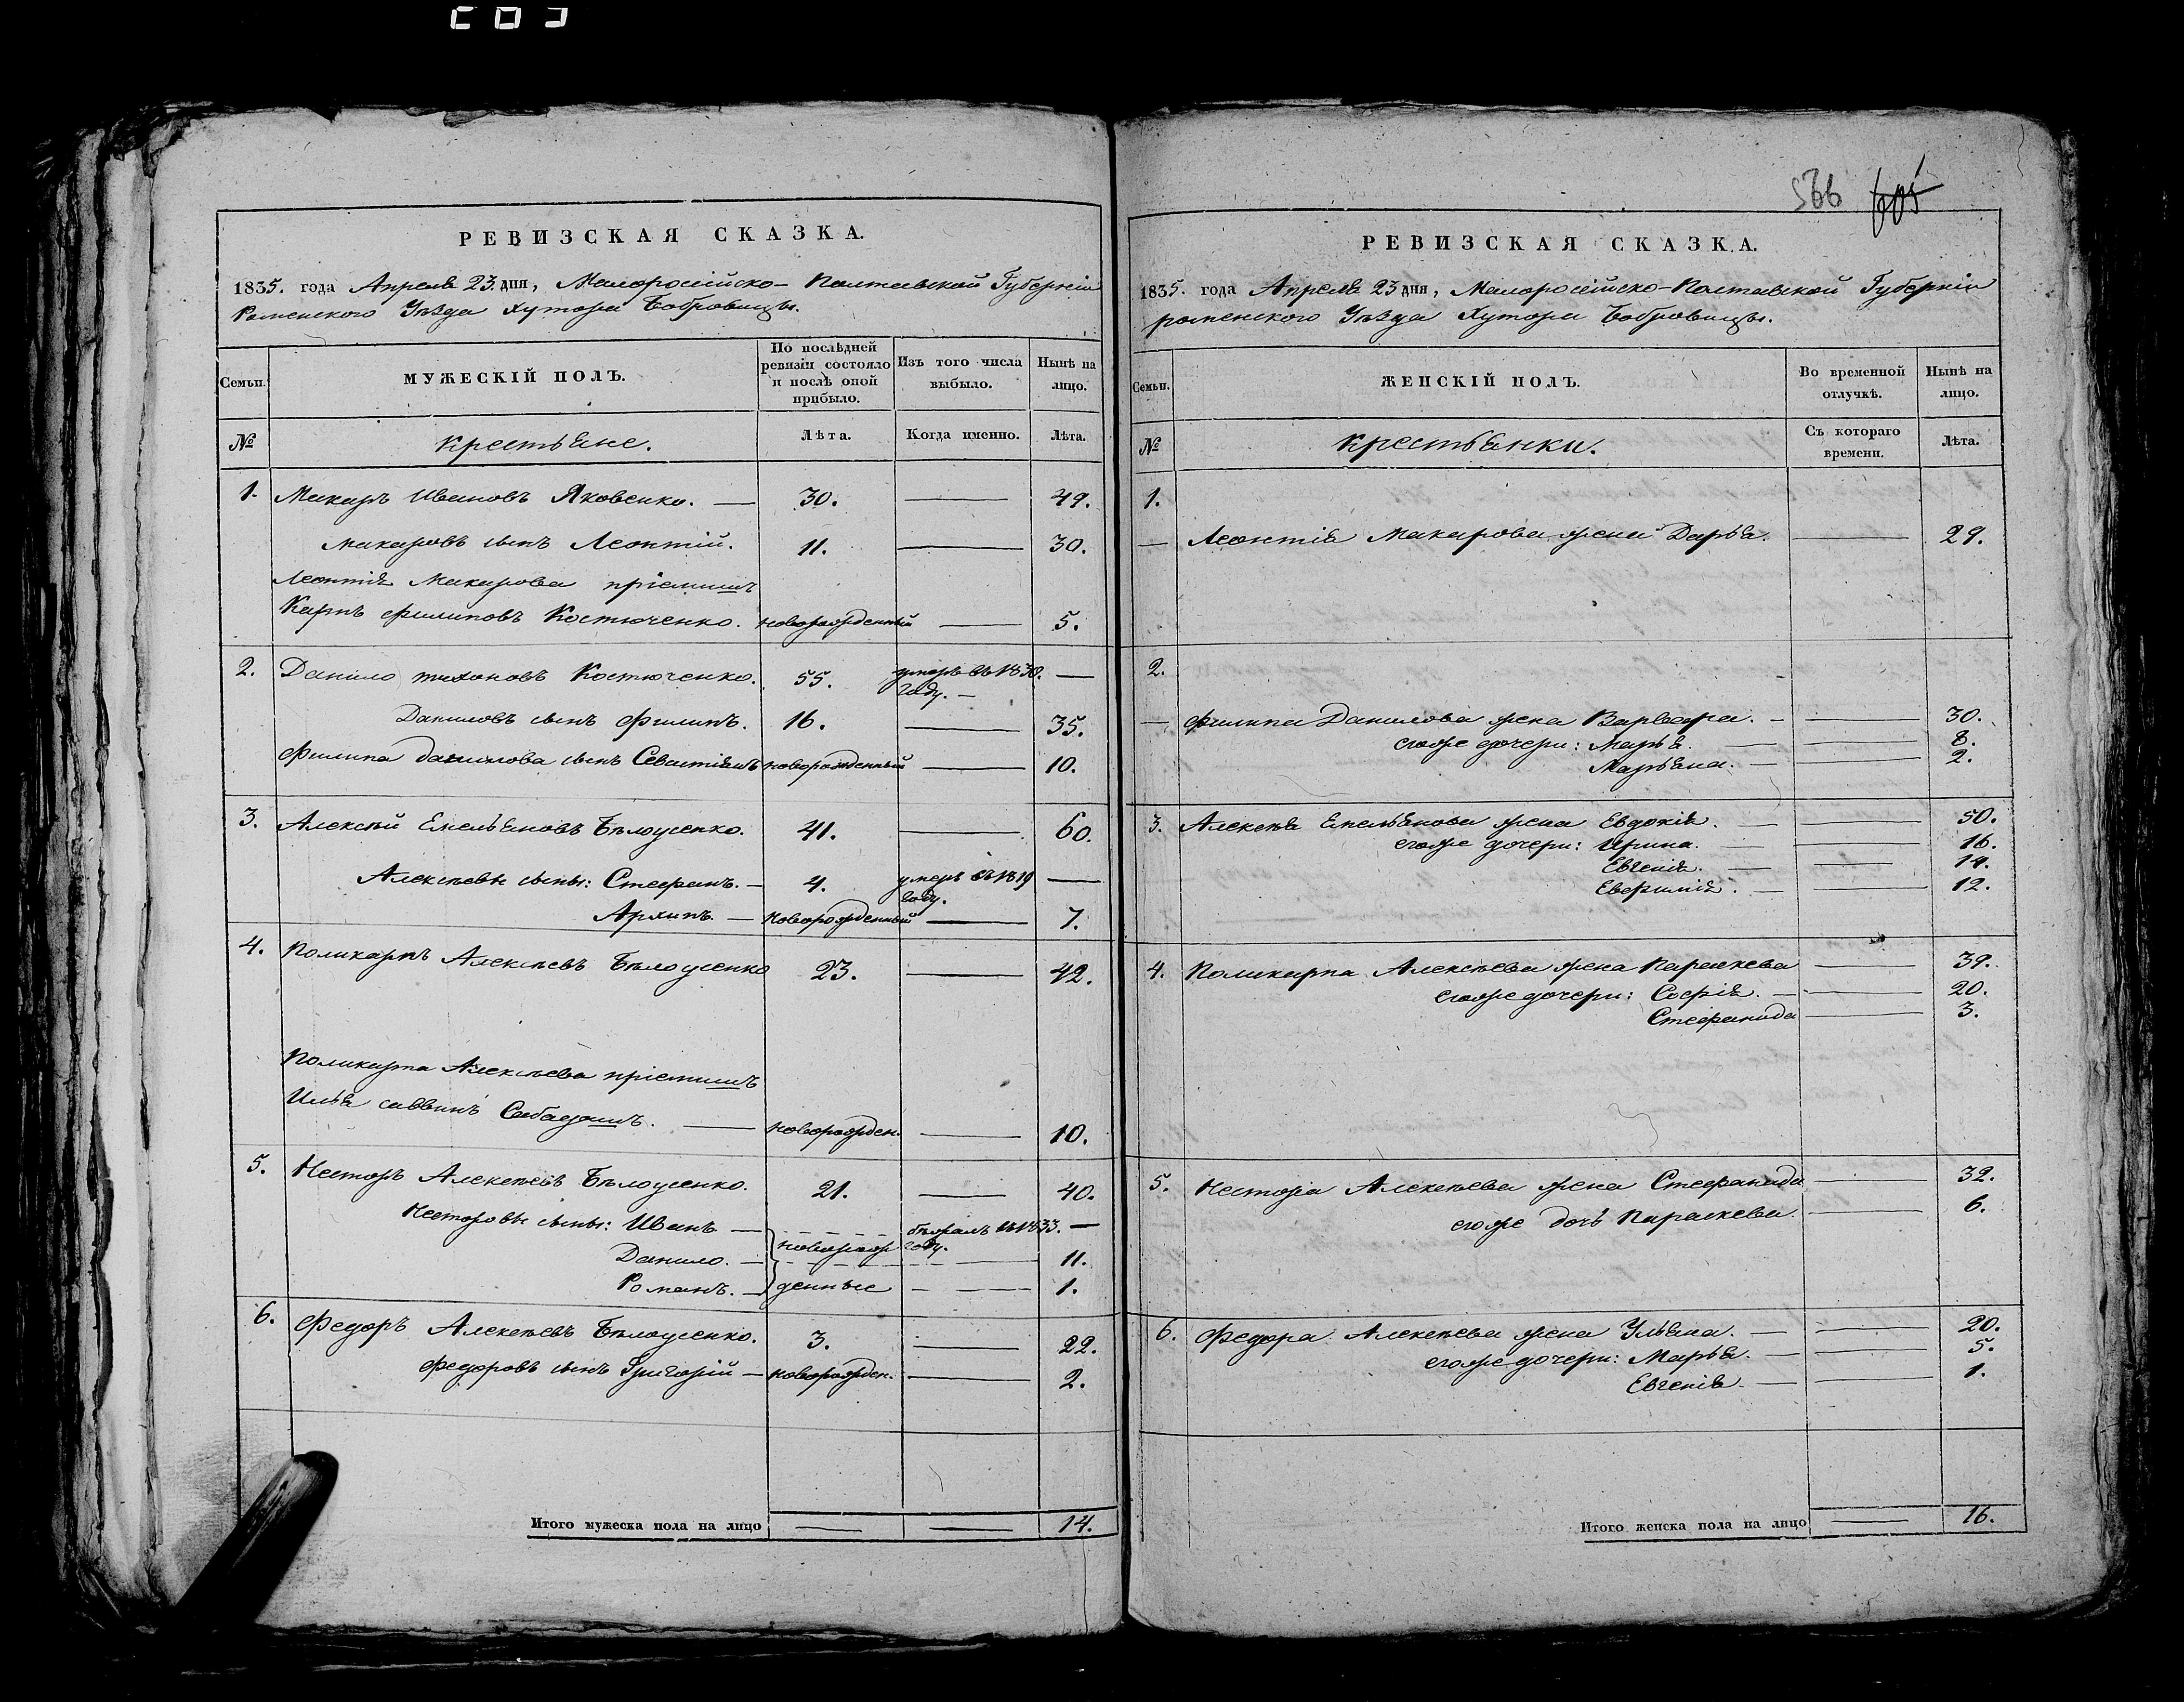 РЕВИЗСКАЯ СКАЗКА.
1835. года Апреля 23. дня, Малоросiйско- Полтавской Губернiи
Роменского Уѣзда Хутора Бобровицы.
Семьи.
МУЖЕСКIЙ ПОЛЪ.
По послѣдней ревизiи состояло и послѣ оной прибыло.
Изъ того числа выбыло.
Нынѣ на лицо.
№
Крестьяне.
Лѣта.
Когда именно.
Лѣта.
1. Макаръ Ивановъ Яковенко. — 30. — 49.
Макаровъ сынъ Леонтiй. 11. — 30.
Леонтiя Макарова прiемышъ
Карпъ Филиповъ Костюченко. новорожденный — 5.
2. Данило тихоновъ Костюченко. 55. умеръ въ 1830. —
году. —
Даниловъ сынъ Филипъ. 16. — 35.
Филипа данилова сынъ Севастiянъ новорожденный — 10.
3. Алексѣй Емельяновъ Бѣлоусенко. 41. — 60.
Алексѣевы сыны: Стефанъ. — 4. умеръ въ 1819 —
году.
Архипъ. — новорожденный — 7.
4. Поликарпъ Алексѣевъ Бѣлоусенко 23. — 42.
Поликарпа Алексѣева прiемышъ
Илья саввинъ Сабадашъ. — новорожден. — 10.
5. Несторъ Алексѣевъ Бѣлоусенко. 21. — 40.
Несторовы сыны: Иванъ — бѣжалъ въ 1833. —
новорож году.
Данило. — 11.
Романъ. — денные — 1.
6. Федоръ Алексѣевъ Бѣлоусенко. 3. — 22.
Федоровъ сынъ Григорiй — новорожден. — 2.
Итого мужеска пола на лицо — — 14.
566 605
РЕВИЗСКАЯ СКАЗКА.
1835. года Апреля 23 дня, Малоросiйско-Полтавской Губернiи
роменского Уѣзда Хутора Бобровицы.
Семьи.
ЖЕНСКIЙ ПОЛЪ.
Во временной отлучкѣ.
Нынѣ на лицо.
№
Крестьянки.
Съ котораго времени.
Лѣта.
1.
— Леонтiя Макарова жена Дарья. — 29.
2.
— Филипа Данилова жена Варвара. — — 30.
егоже дочери: Марья. — — 8.
Марьяна. — — 2.
3. Алексѣя Емельянова жена Евдокiя. — — 50.
егоже дочери: Ирина. — — 16.
Евгенiя. — — 14.
Евфимiя. — — 12.
4. Поликарпа Алексѣева жена Параскева — 39.
егоже дочери: Софiя. — — 20.
Стефанида — 3.
5. Нестора Алексѣева жена Стефанида — 32.
егоже дочь Параскева. — 6.
6. Федора Алексѣева жена Ульяна. — — 20.
егоже дочери: Марья. — — 5.
Евгенiя. — — 1.
Итого женска пола на лицо — 16.